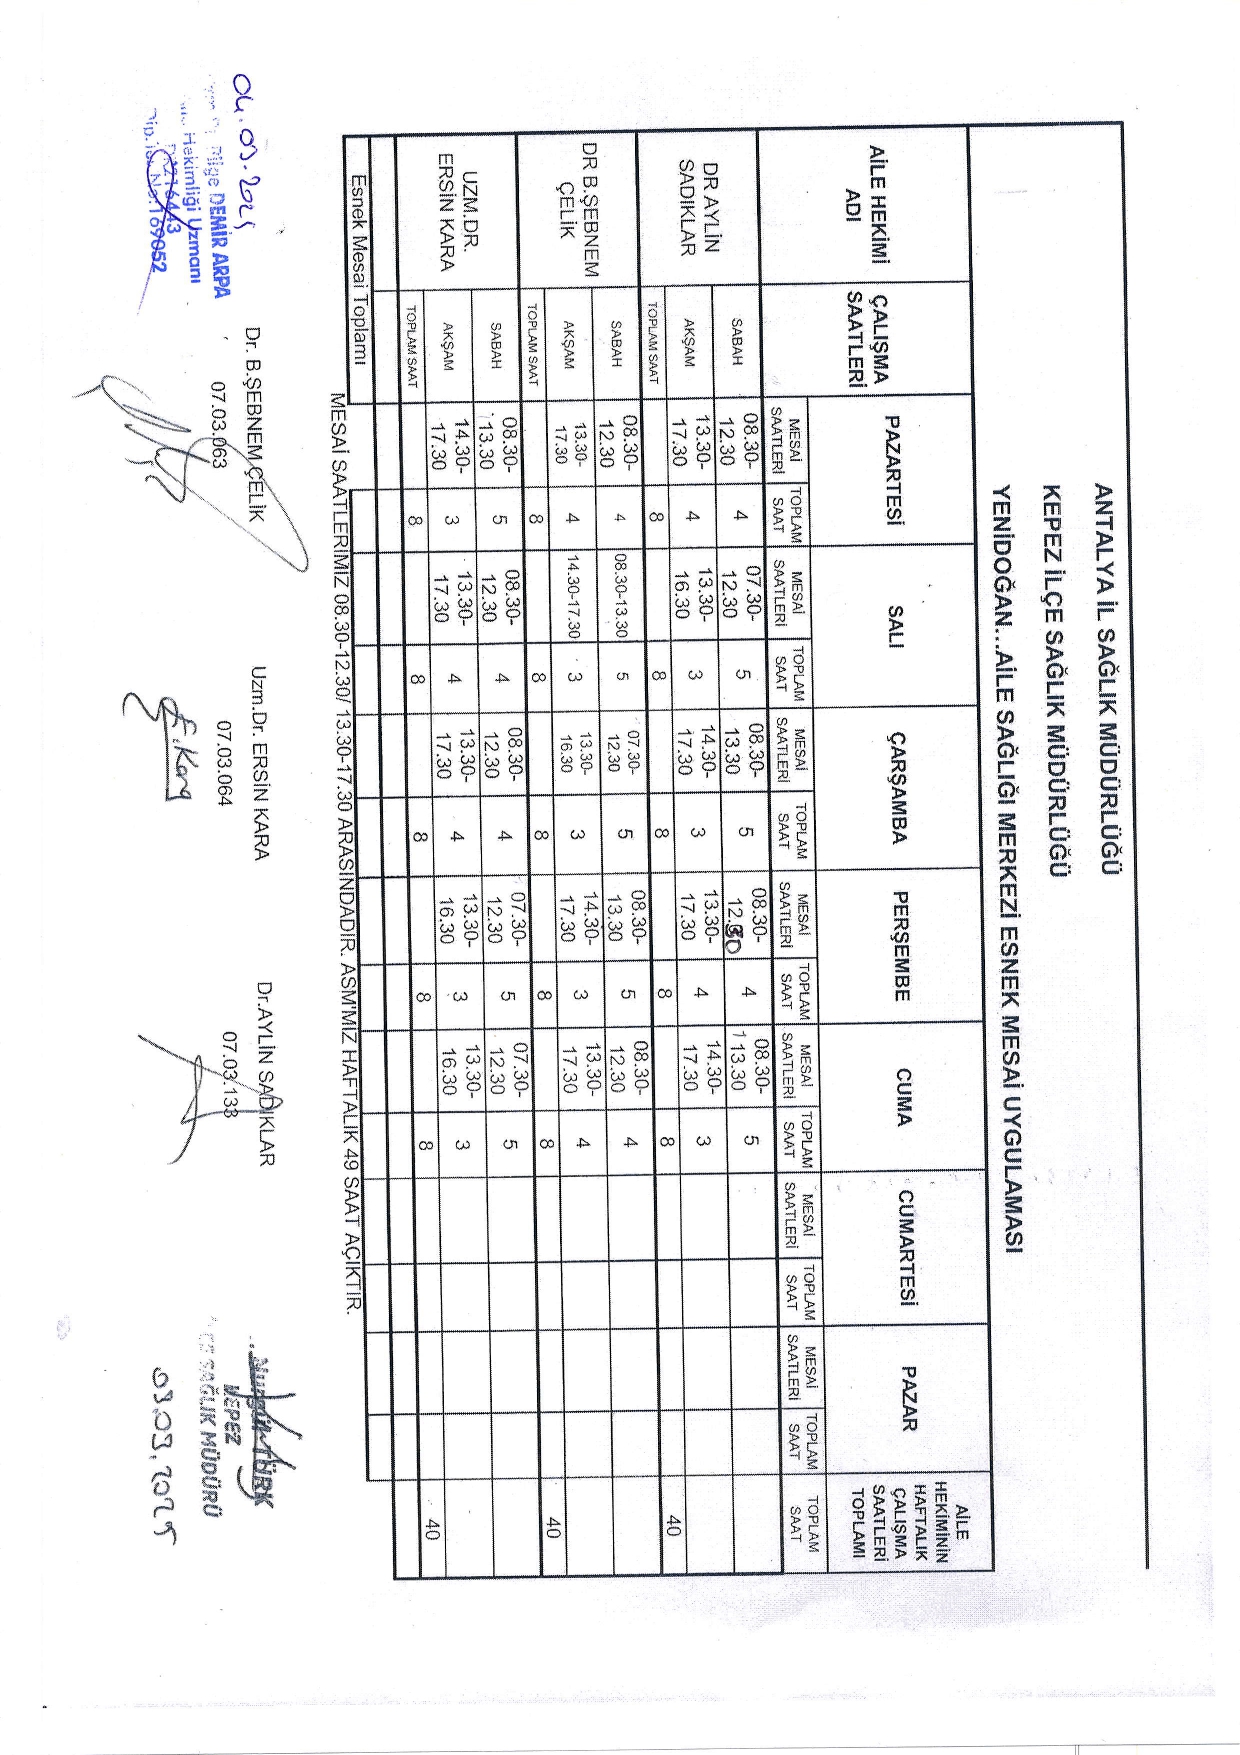 ANTALYA İL SAĞLIK MÜDÜRLÜĞÜ
KEPEZ İLÇE SAĞLIK MÜDÜRLÜĞÜ
YENİDOĞAN...AİLE SAĞLIĞI MERKEZİ ESNEK MESAİ UYGULAMASI
AİLE HEKİMİ ADI ÇALIŞMA SAATLERİ PAZARTESİ SALI ÇARŞAMBA PERŞEMBE CUMA CUMARTESİ PAZAR AİLE HEKİMİNİN HAFTALIK ÇALIŞMA SAATLERİ TOPLAMI
MESAİ SAATLERİ TOPLAM SAAT MESAİ SAATLERİ TOPLAM SAAT MESAİ SAATLERİ TOPLAM SAAT MESAİ SAATLERİ TOPLAM SAAT MESAİ SAATLERİ TOPLAM SAAT MESAİ SAATLERİ TOPLAM SAAT MESAİ SAATLERİ TOPLAM SAAT TOPLAM SAAT
DR AYLİN SADIKLAR
SABAH 08.30-12.30 4 07.30-12.30 5 08.30-13.30 5 08.30-12.30 4 08.30-13.30 5
AKŞAM 13.30-17.30 4 13.30-16.30 3 14.30-17.30 3 13.30-17.30 4 14.30-17.30 3
TOPLAM SAAT 8 8 8 8 8 40
DR B.ŞEBNEM ÇELİK
SABAH 08.30-12.30 4 08.30-13.30 5 07.30-12.30 5 08.30-13.30 5 08.30-12.30 4
AKŞAM 13.30-17.30 4 14.30-17.30 3 13.30-16.30 3 14.30-17.30 3 13.30-17.30 4
TOPLAM SAAT 8 8 8 8 8 40
UZM.DR. ERSİN KARA
SABAH 08.30-13.30 5 08.30-12.30 4 08.30-12.30 4 07.30-12.30 5 07.30-12.30 5
AKŞAM 14.30-17.30 3 13.30-17.30 4 13.30-17.30 4 13.30-16.30 3 13.30-16.30 3
TOPLAM SAAT 8 8 8 8 8 40
Esnek Mesai Toplamı
MESAİ SAATLERİMİZ 08.30-12.30/ 13.30-17.30 ARASINDADIR. ASM'MİZ HAFTALIK 49 SAAT AÇIKTIR.
04.09.2025
Bilge DEMİR ARPA
Hekimliği Uzmanı
No:169052
Dr. B.ŞEBNEM ÇELİK
07.03.063
Uzm.Dr. ERSİN KARA
07.03.064
E.Kara
Dr.AYLİN SADIKLAR
07.03.133
TÜRK
KEPEZ
SAĞLIK MÜDÜRÜ
03.09.2025